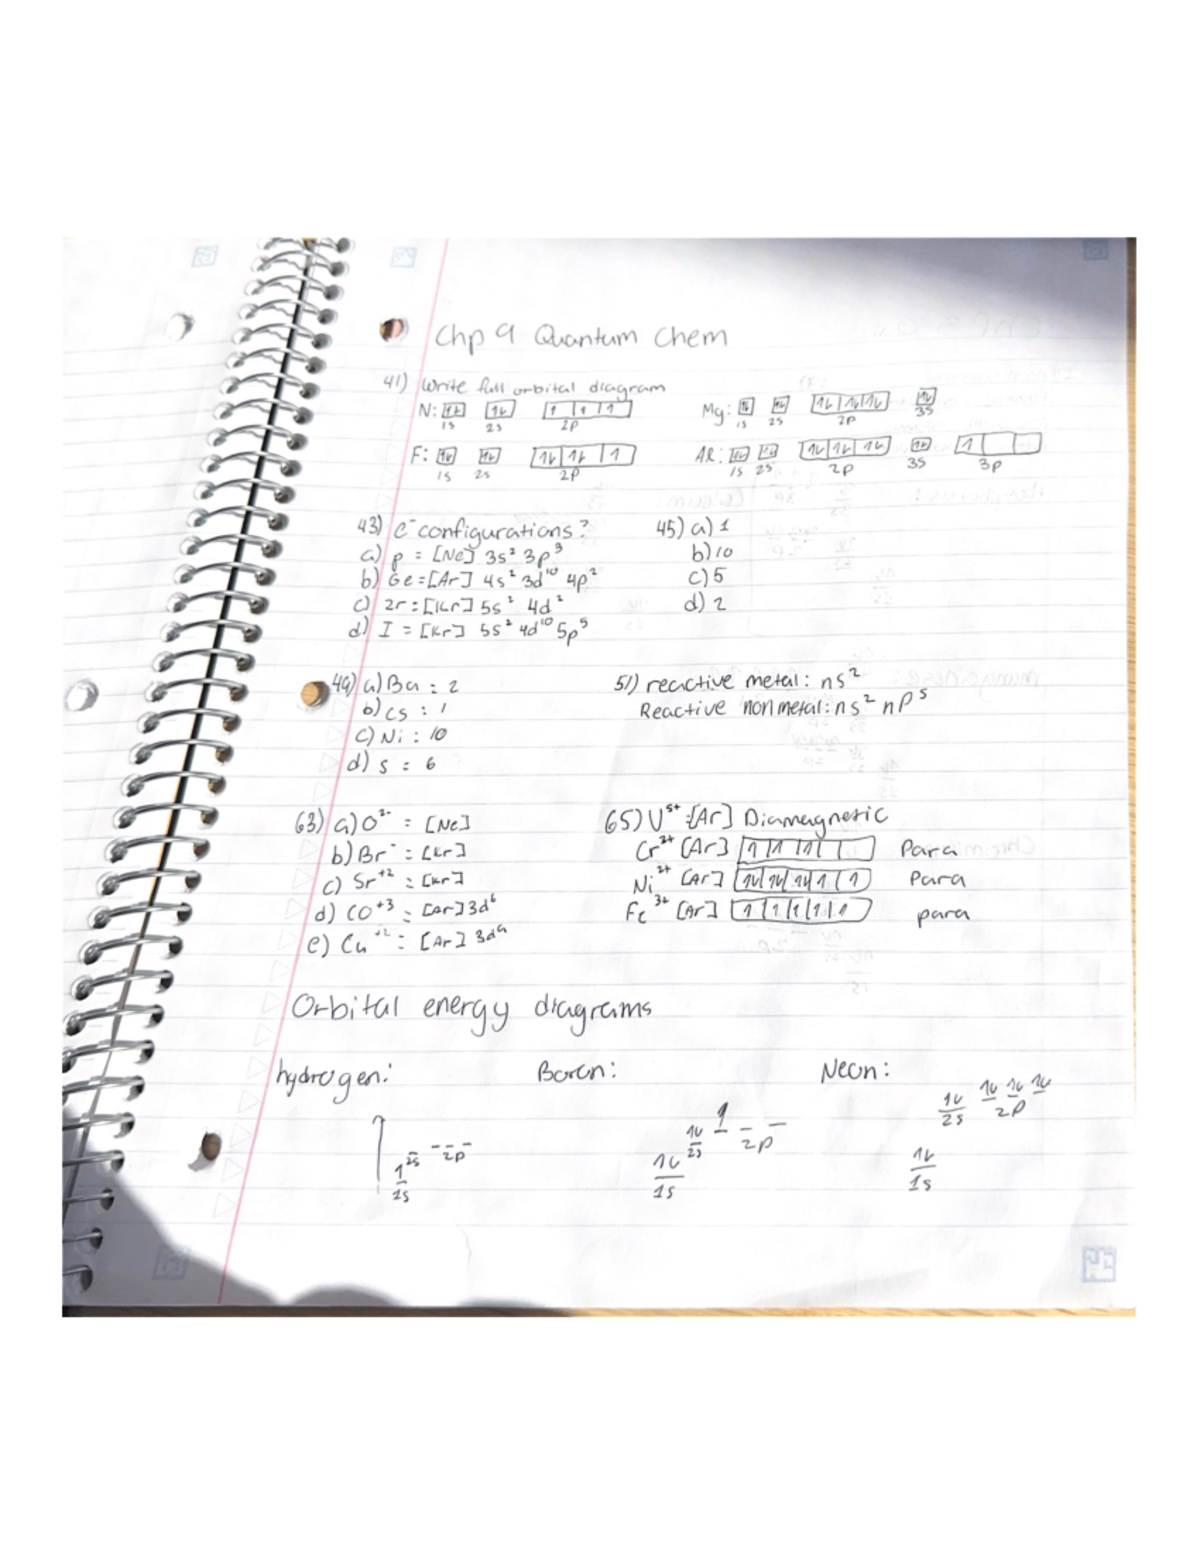 Chp 9 Quantum Chem
41) Write full orbital diagram
N: 1↓ 1↓ 1 1 1
1s 2s 2p
Mg: 1↓ 1↓ 1↓ 1↓ 1↓ 1↓
1s 2s 2p 3s
F: 1↓ 1↓ 1↓ 1↓ 1
1s 2s 2p
Al: 1↓ 1↓ 1↓ 1↓ 1↓ 1↓ 1
1s 2s 2p 3s 3p
43) e⁻ configurations?
a) p = [Ne] 3s² 3p³
b) Ge = [Ar] 4s² 3d¹⁰ 4p²
c) Zr = [Kr] 5s² 4d²
d) I = [Kr] 5s² 4d¹⁰ 5p⁵
45) a) 1
b) 10
c) 5
d) 2
49) a) Ba : 2
b) Cs : 1
c) Ni : 10
d) s : 6
51) reactive metal: ns²
Reactive nonmetal: ns² np⁵
63) a) O²⁻ = [Ne]
b) Br⁻ = [Kr]
c) Sr⁺² = [Kr]
d) CO⁺³ = [Ar] 3d⁶
e) Cu⁺² = [Ar] 3d⁹
65) V⁵⁺: [Ar] Diamagnetic
Cr²⁺ [Ar] 1 1 1 1 Para
Ni²⁺ [Ar] 1↓ 1↓ 1↓ 1 1 Para
Fe³⁺ [Ar] 1 1 1 1 1 para
Orbital energy diagrams
hydrogen:
1
2s
2s
2p
Boron:
1↓
1s
1↓
2s
1
2p
Neon:
1↓
1s
1↓
2s
1↓ 1↓ 1↓
2p